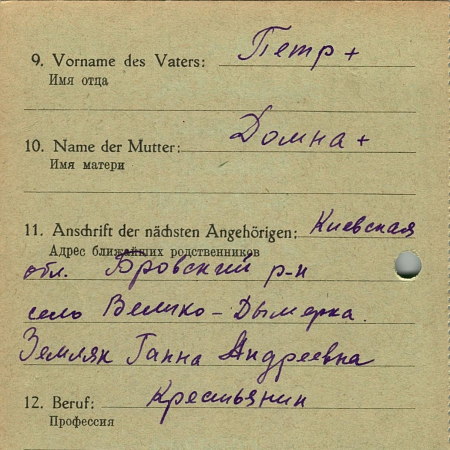 9. Vorname des Vaters: Петр +
Имя отца
10. Name der Mutter: Домна +
Имя матери
11. Anschrift der nächsten Angehörigen: Киевская
Адрес ближайших родственников
обл. Бровский р-н
село Велико-Дымерка.
Земляк Ганна Андреевна
12. Beruf: Крестьянин
Профессия